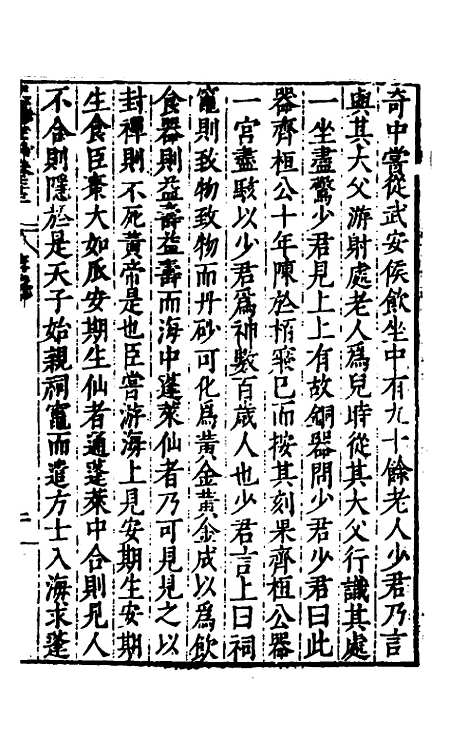 奇中嘗從武安侯飲坐中有九十餘老人少君乃言
與其大父游射處老人為兒時從其大父行識其處
一坐盡驚少君見上上有故銅器問少君少君曰此
器齊桓公十年陳於栢寢已而按其刻果齊桓公器
一宫盡駭以少君爲神數百歲人也少君言上曰祠
竈則致物致物而丹砂可化爲黃金黃金成以爲飲
食器則益壽益壽而海中蓬萊仙者乃可見見之以
封禪則不死黃帝是也臣嘗游海上見安期生安期
生食臣棗大如瓜安期生仙者通蓬萊中合則見人
不合則隱於是天子始親祠竈而遣方士入海求蓬